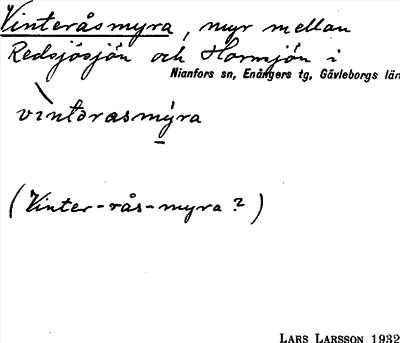 Vinteråsmyra, myr mellan
Redsjösjön och Hornsjön i
Nianfors sn, Enångers tg, Gävleborgs län
vintərasmyra
(Vinter-rås-myra?)
LARS LARSSON 1932